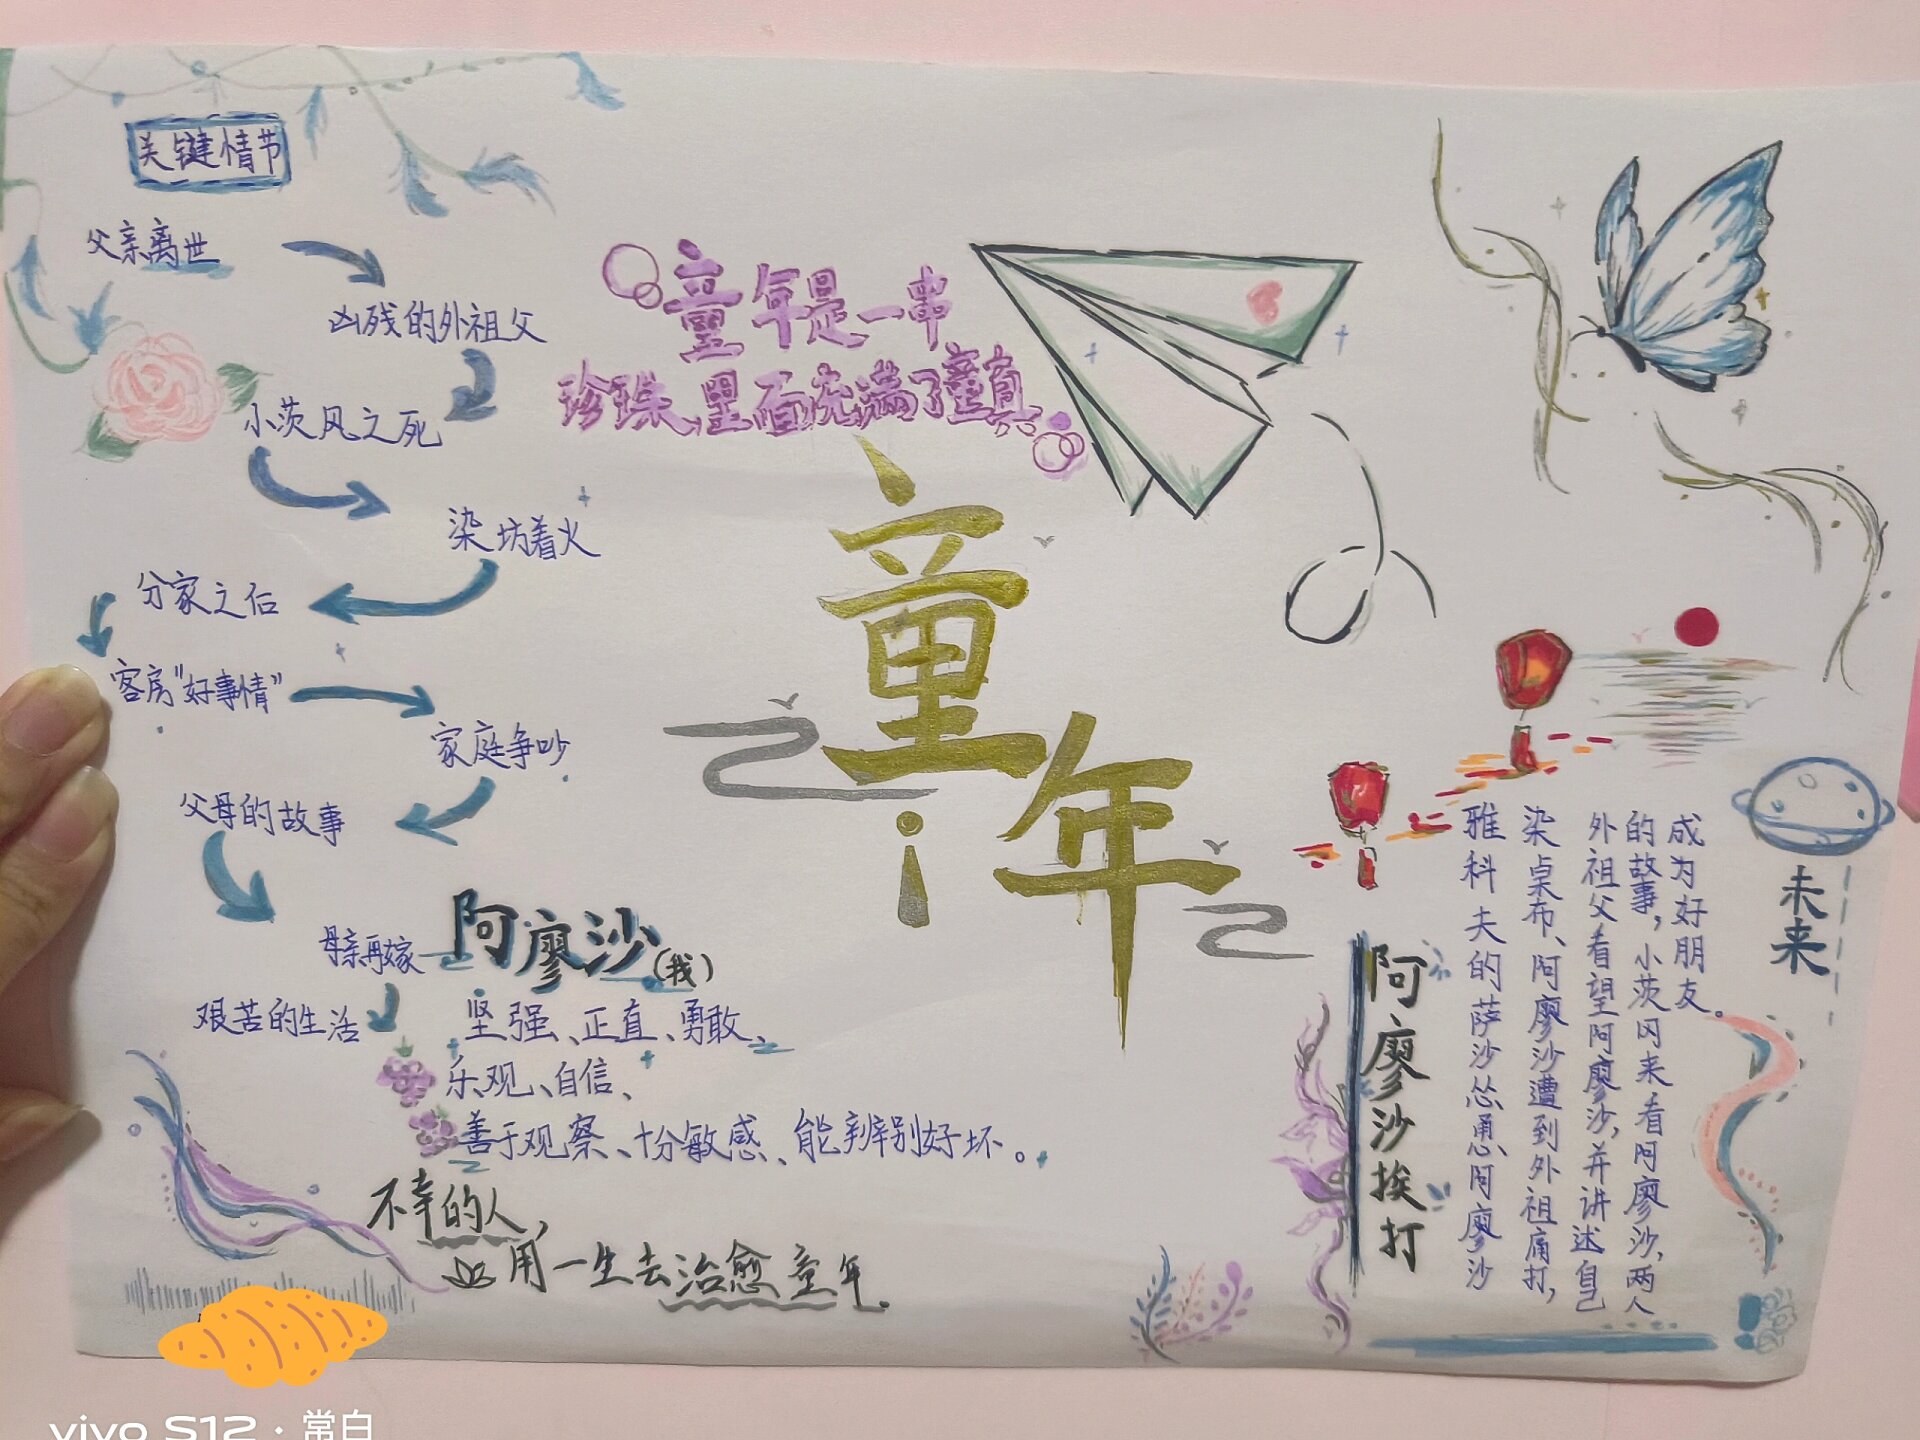 关键情节
父亲离世
凶残的外祖父
小茨风之死
染坊着火
分家之后
客房"好事情"
家庭争吵
父母的故事
母亲再嫁
艰苦的生活
童年是一串
珍珠、里面充满了童真。
童年
阿廖沙(我)
坚强、正直、勇敢、
乐观、自信、
善于观察、十分敏感、能辨别好坏。
不幸的人,
用一生去治愈童年.
未来
阿廖沙挨打
雅科夫的萨沙怂恿阿廖沙
染桌布、阿廖沙遭到外祖痛打,
外祖父看望阿廖沙,并讲述自己
的故事,小茨冈来看阿廖沙,两人
成为好朋友。
vivo S12·常白